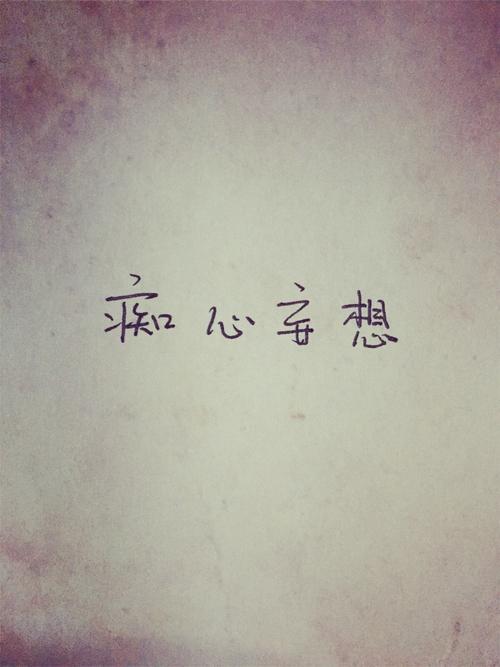 痴心妄想